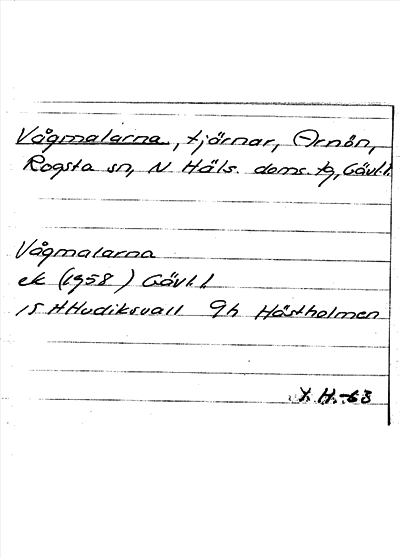 Vågmalarna, tjärnar, Arnön,
Rogsta sn, N Häls. doms. tg, Gävl. l.
Vågmalarna
ek (1958) Gävl. l.
15 H Hudiksvall 9h Hästholmen
H. -63